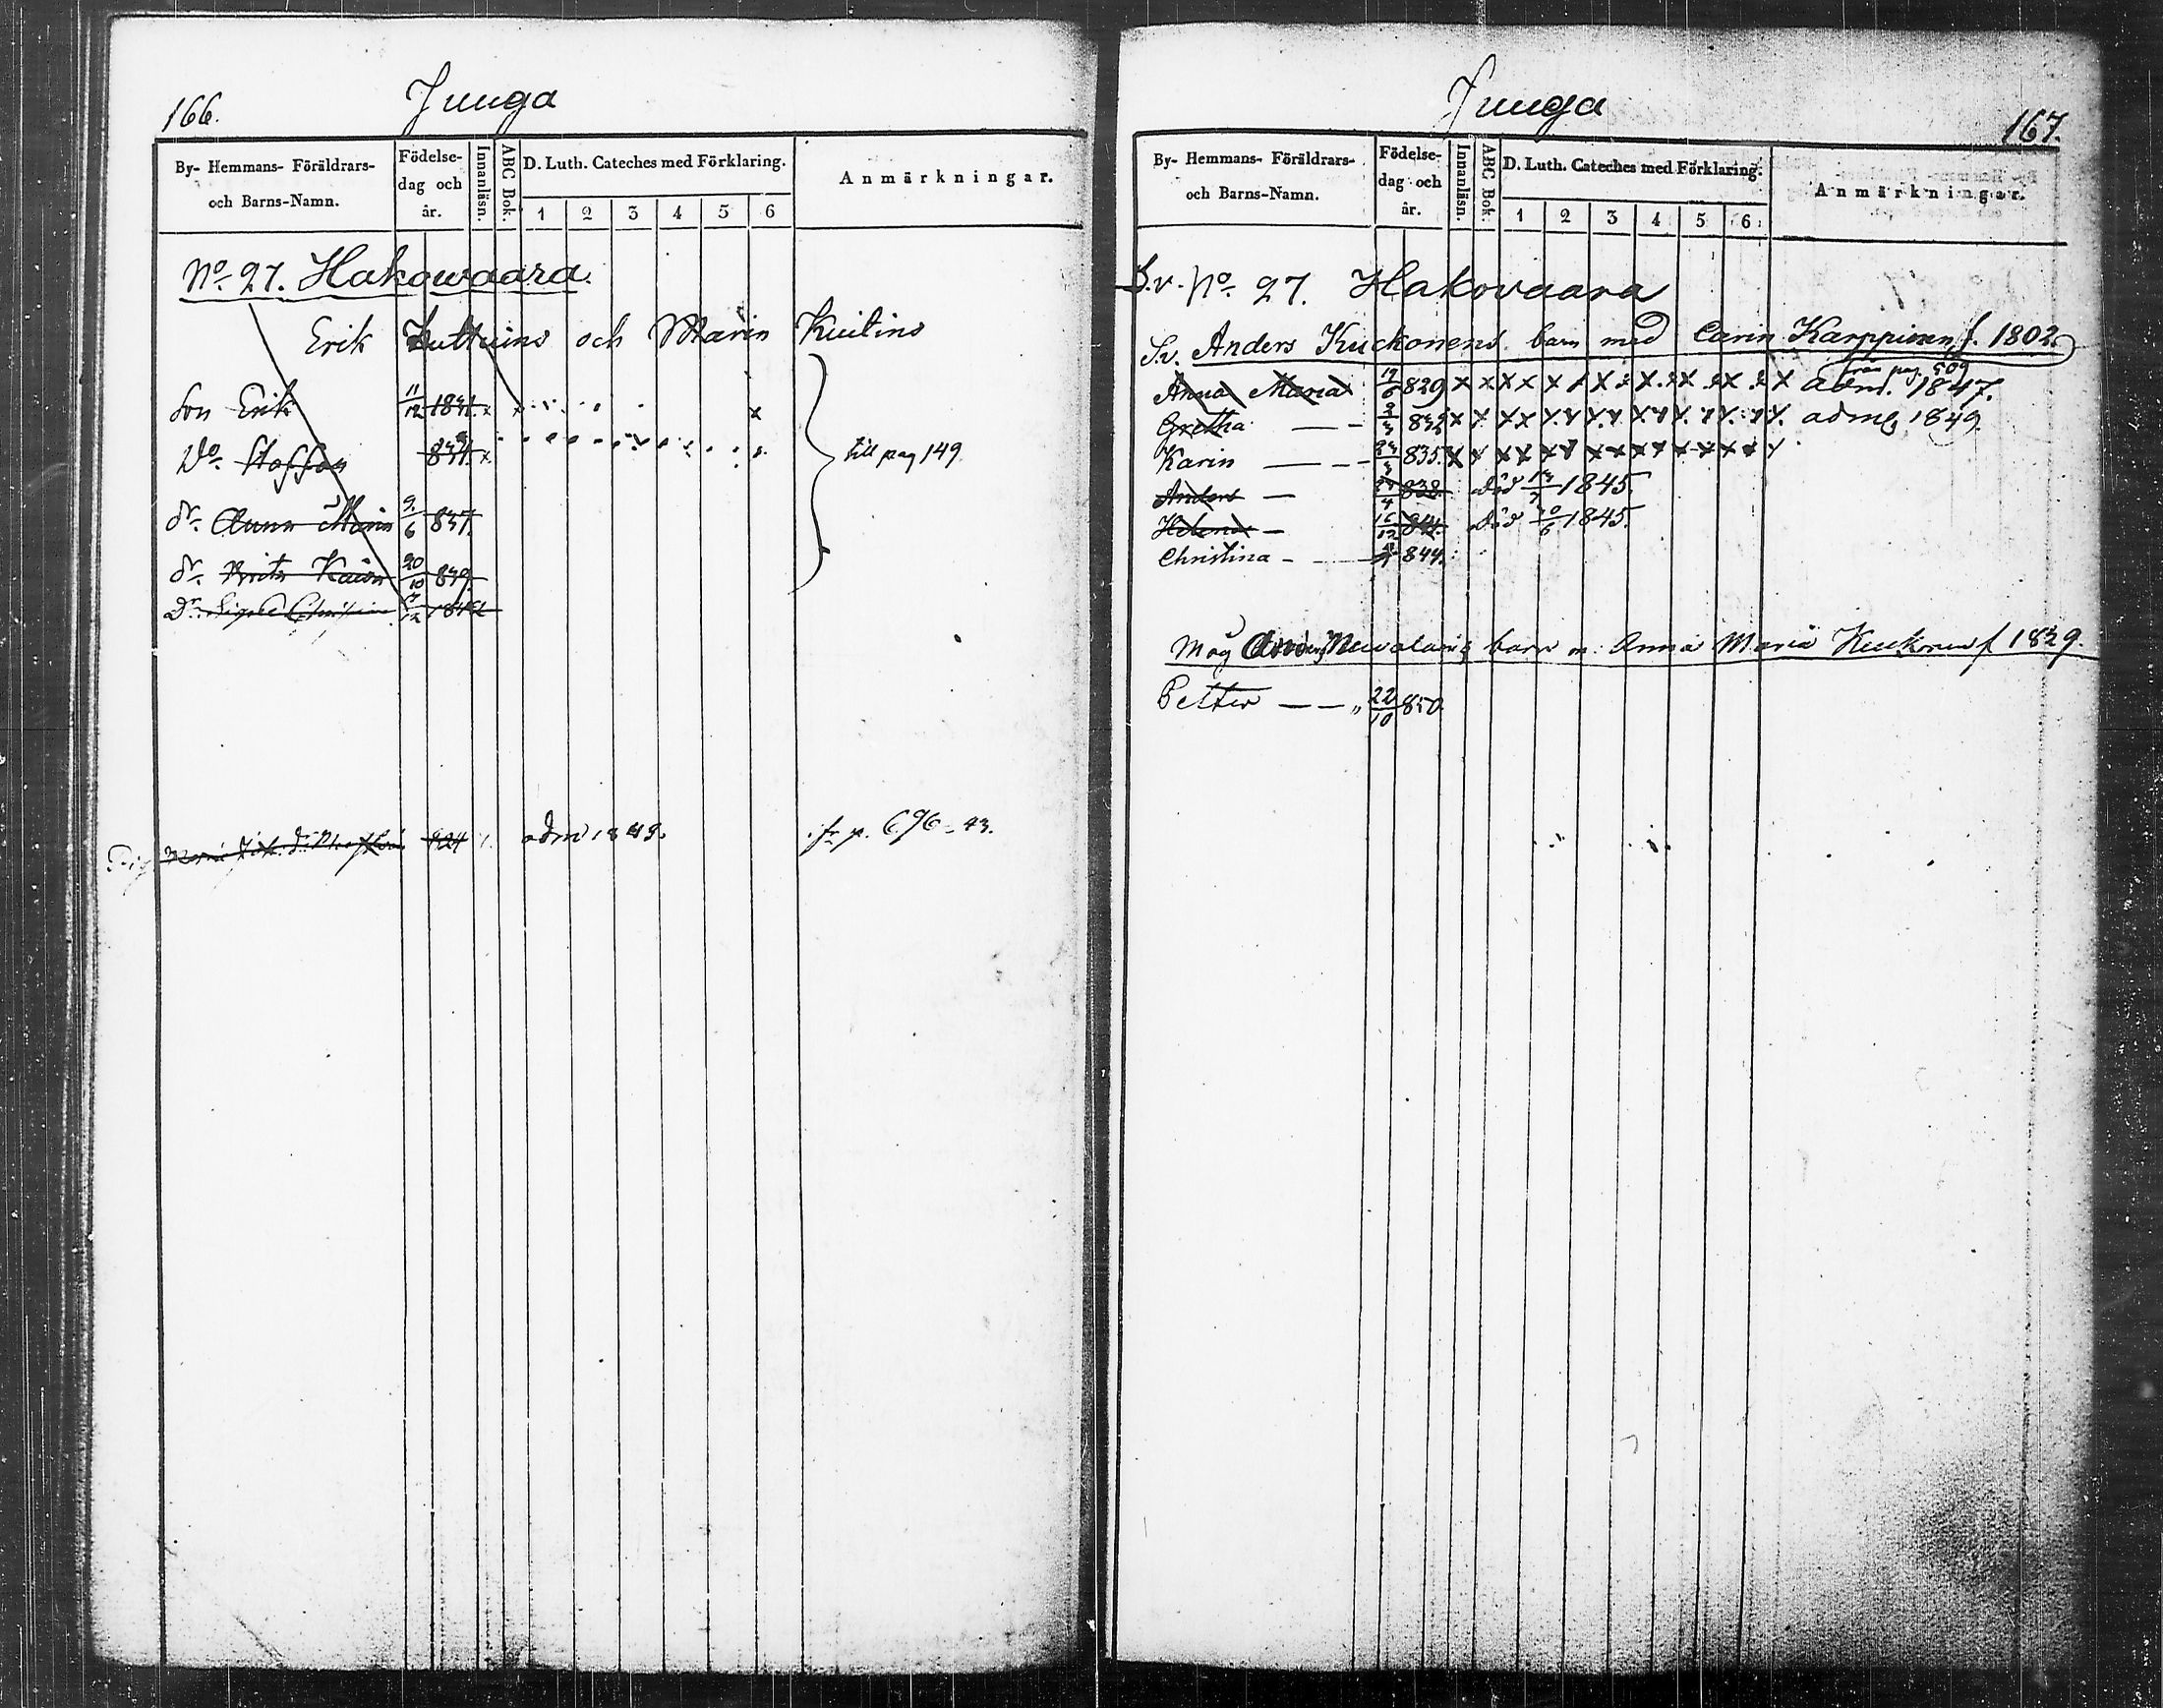 166.
Juuga
By- Hemmans- Föräldrars-
och Barns-Namn.
Födelse-
dag och
år.
Innanläsn.
ABC Bok.
D. Luth. Cateches med Förklaring.
1 2 3 4 5 6
Anmärkningar.
No. 27. Hakowaara.
Erik och Marin Kuitins
Son Erik 11/12
Do. Staffan till pag 149.
dr. Anna Maria 9/6 837.
dr. Brita Kaisa 20/10 839.
Dr. Christina
824 adm 1843. fr p. 696-43.
Juuga
167.
By- Hemmans- Föräldrars-
och Barns-Namn.
Födelse-
dag och
år.
Innanläsn.
ABC Bok.
D. Luth. Cateches med Förklaring.
1 2 3 4 5 6
Anmärkningar.
S.v. No. 27. Hakovaara
Sv. Anders Kuckonens barn med Carin Karppinen f. 1802.
från pag. 509
Anna Maria 829 x x x x x x x x x adm. 1847.
Gretha — - x x x x x x x x adm 1849.
Karin — - - 835. x x x x x x x x x
Anders — 838. död 1845.
Helena — 16/12 841. död 1845.
Christina - 844.
Måg Anders barn m. Anna Maria Kuckonen f 1829.
Petter — — „ 22/10 850